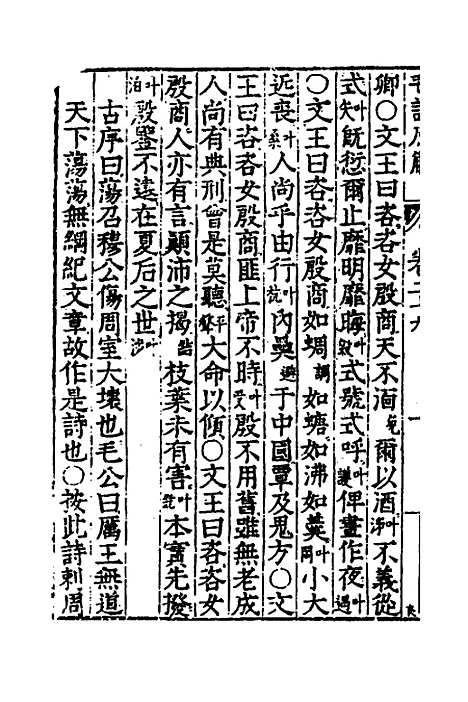 毛詩原解 卷二十九
卿○文王曰咨咨女殷商天不湎爾以酒叶不義從
式叶旣愆爾止靡明靡晦叶式號式呼叶俾晝作夜叶
○文王曰咨咨女殷商如蜩如螗如沸如羹叶小大
近喪叶人尚乎由行叶內奰避于中國覃及鬼方○文
王曰咨咨女殷商匪上帝不時叶殷不用舊雖無老成
人尚有典刑曾是莫聽平大命以傾○文王曰咨咨女
殷商人亦有言顚沛之揭枝葉未有害叶本實先撥
叶殷鑒不遠在夏后之世叶
古序曰蕩召穆公傷周室大壞也毛公曰厲王無道
天下蕩蕩無綱紀文章故作是詩也○按此詩刺周